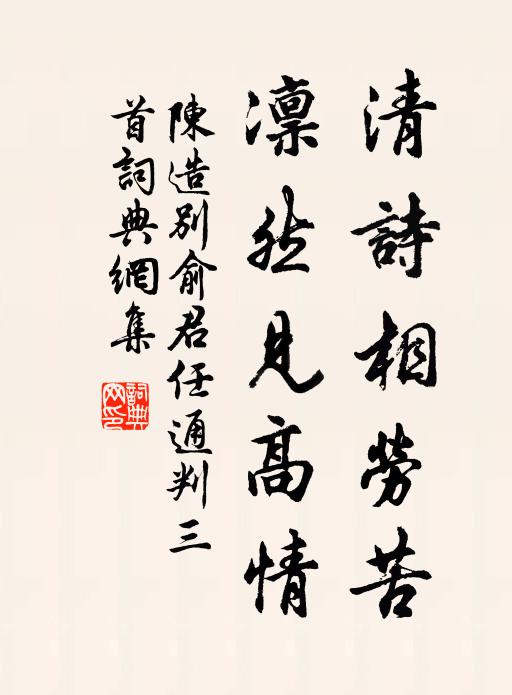 清詩相勞苦
凜然見高情
陳造別俞君任通判三
首詞典網集
詞典
网印